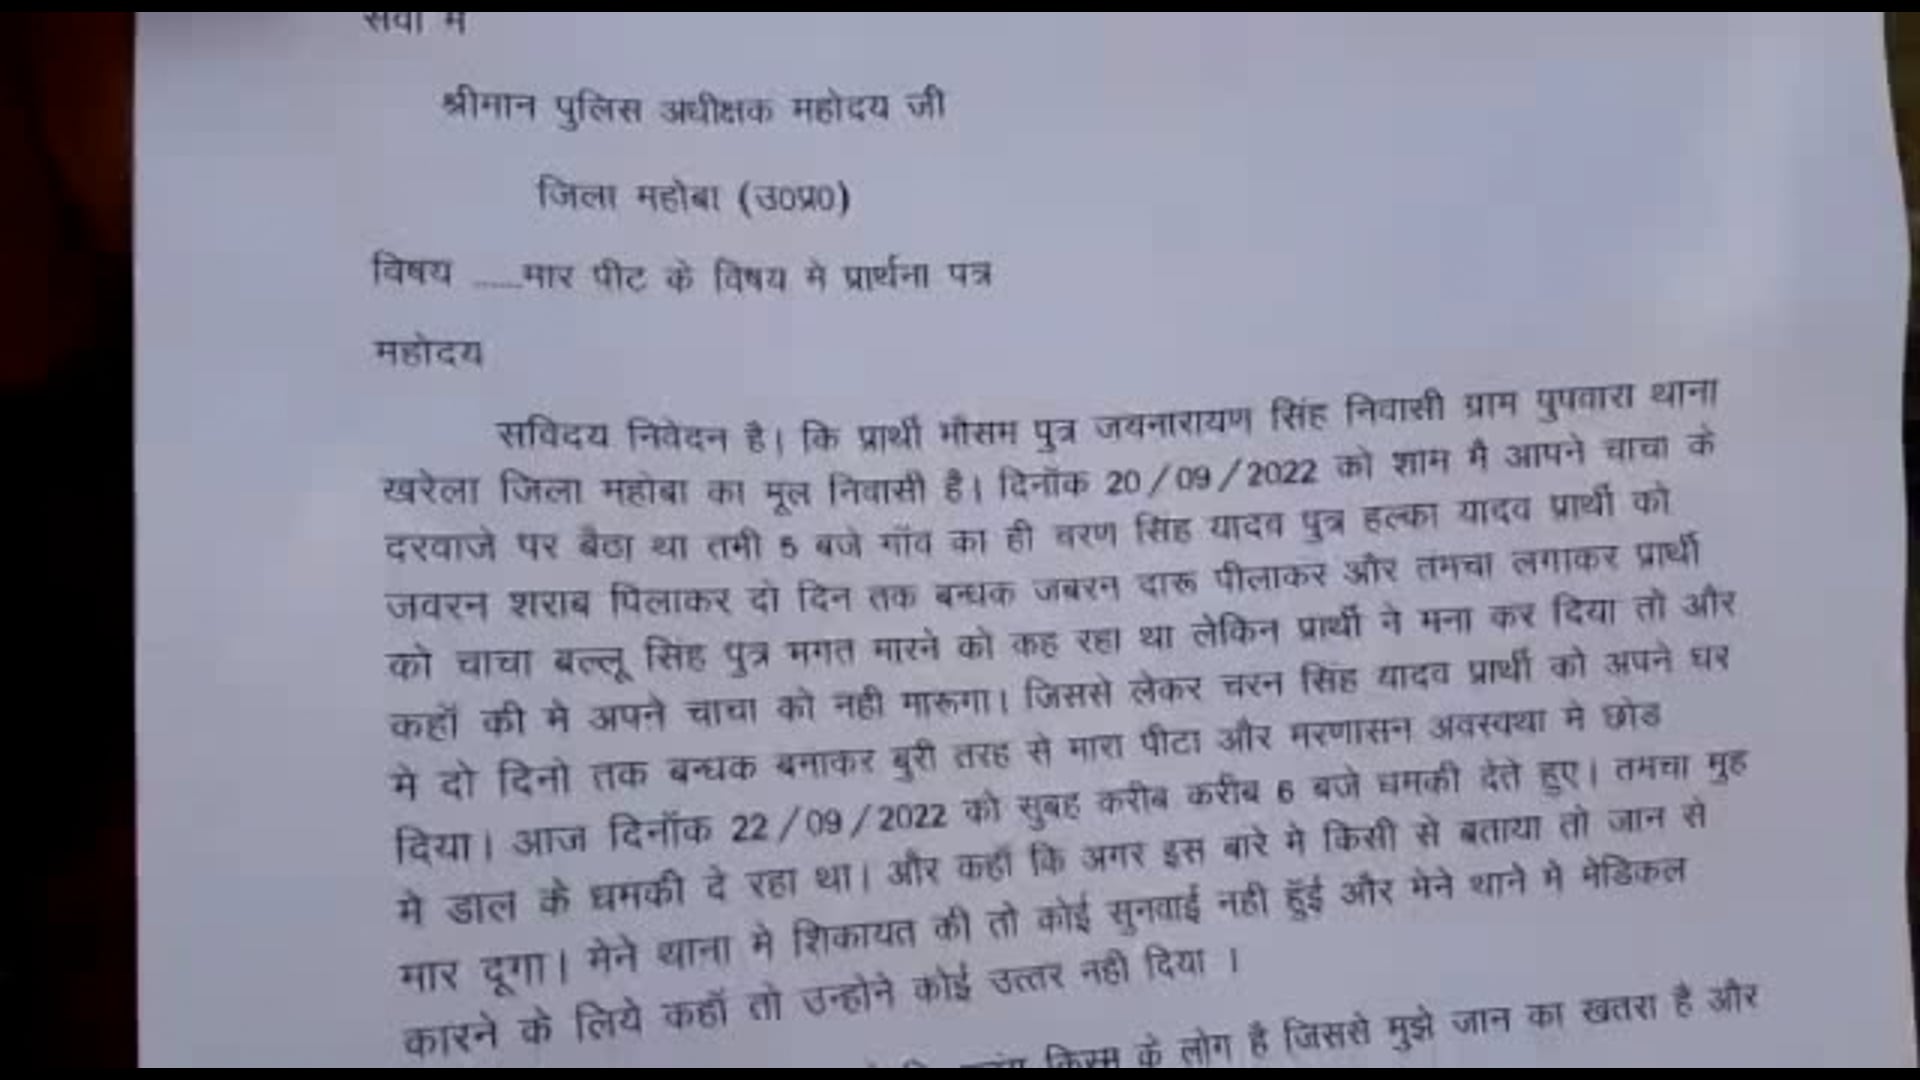 सेवा मे
श्रीमान पुलिस अधीक्षक महोदय जी
जिला महोबा (उ0प्र0)
विषय .....मार पीट के विषय मे प्रार्थना पत्र
महोदय
सविदय निवेदन है। कि प्रार्थी मौसम पुत्र जयनारायण सिंह निवासी ग्राम पुपवारा थाना
खरेला जिला महोबा का मूल निवासी है। दिनॉक 20/09/2022 को शाम मै आपने चाचा के
दरवाजे पर बैठा था तभी 5 बजे गॉव का ही चरण सिंह यादव पुत्र हल्का यादव प्रार्थी को
जवरन शराब पिलाकर दो दिन तक बन्धक जबरन दारू पीलाकर और तमचा लगाकर प्रार्थी
को चाचा बल्लू सिंह पुत्र भगत मारने को कह रहा था लेकिन प्रार्थी ने मना कर दिया तो और
कहॉ की मे अपने चाचा को नही मारूगा। जिससे लेकर चरन सिंह यादव प्रार्थी को अपने घर
मे दो दिनो तक बन्धक बनाकर बुरी तरह से मारा पीटा और मरणासन अवस्वथा मे छोड
दिया। आज दिनॉक 22/09/2022 को सुबह करीब करीब 6 बजे धमकी देते हुए। तमचा मुह
मे डाल के धमकी दे रहा था। और कहॉ कि अगर इस बारे मे किसी से बताया तो जान से
मार दूगा। मेने थाना मे शिकायत की तो कोई सुनवाई नही हॅुई और मेने थाने मे मेडिकल
कारने के लिये कहॉ तो उन्होने कोई उत्तर नही दिया ।
किस्म के लोग है जिससे मुझे जान का खतरा है और